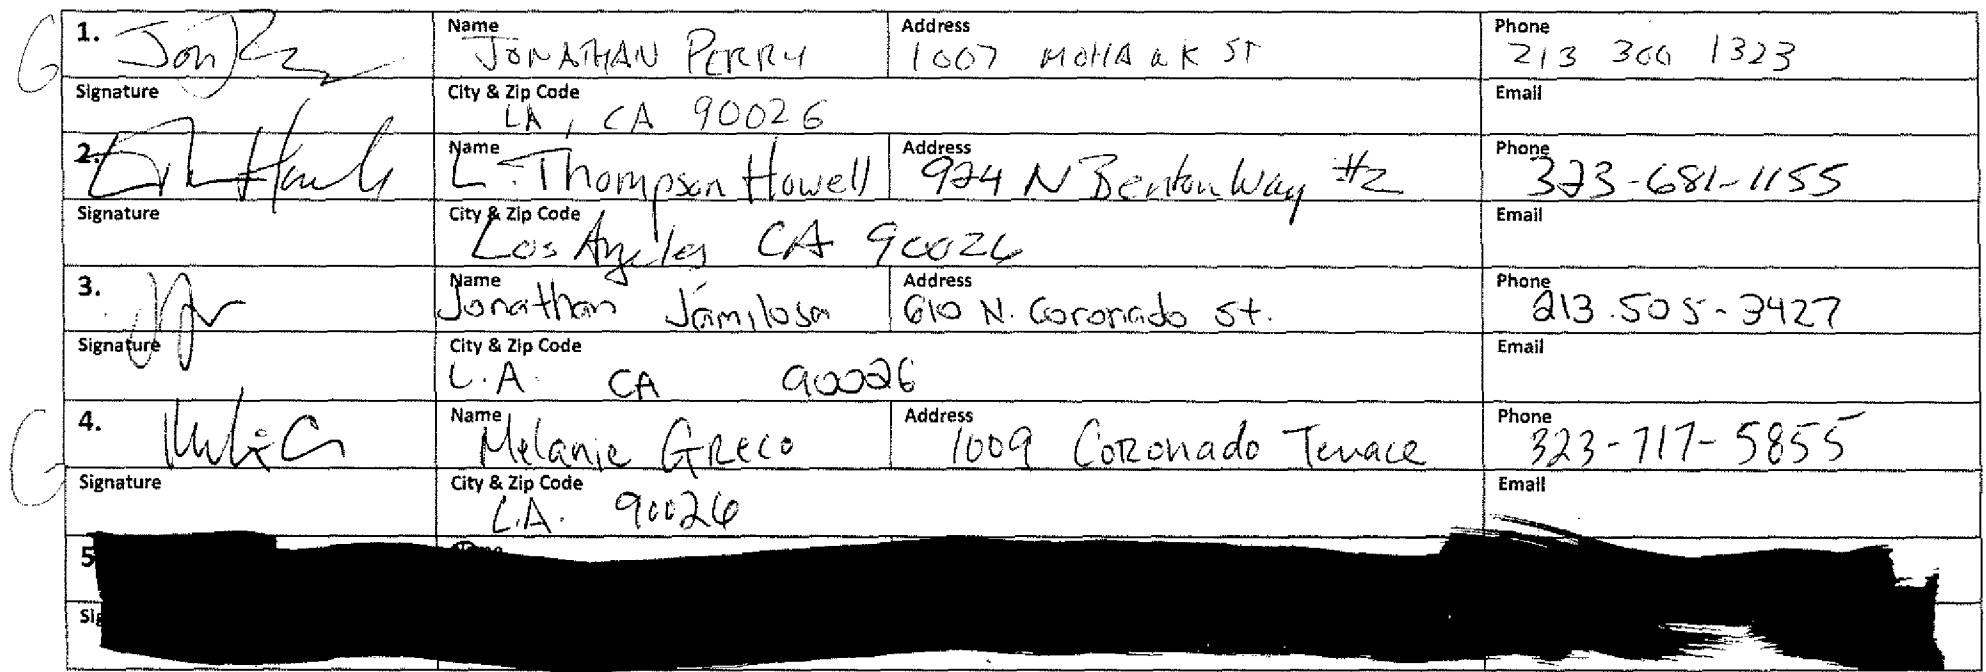 1. Jon Name JONATHAN PERRY Address 1007 MOHAWK ST Phone 213 300 1323
Signature City & Zip Code LA, CA 90026 Email
2. Name L. Thompson Howell Address 924 N Benton Way #2 Phone 323-681-1155
Signature City & Zip Code Los Angeles CA 90026 Email
3. Name Jonathan Jamilosa Address 610 N. Coronado St. Phone 213.505-3427
Signature City & Zip Code L.A. CA 90026 Email
4. Name Melanie Greco Address 1009 Coronado Terrace Phone 323-717-5855
Signature City & Zip Code L.A. 90026 Email
5